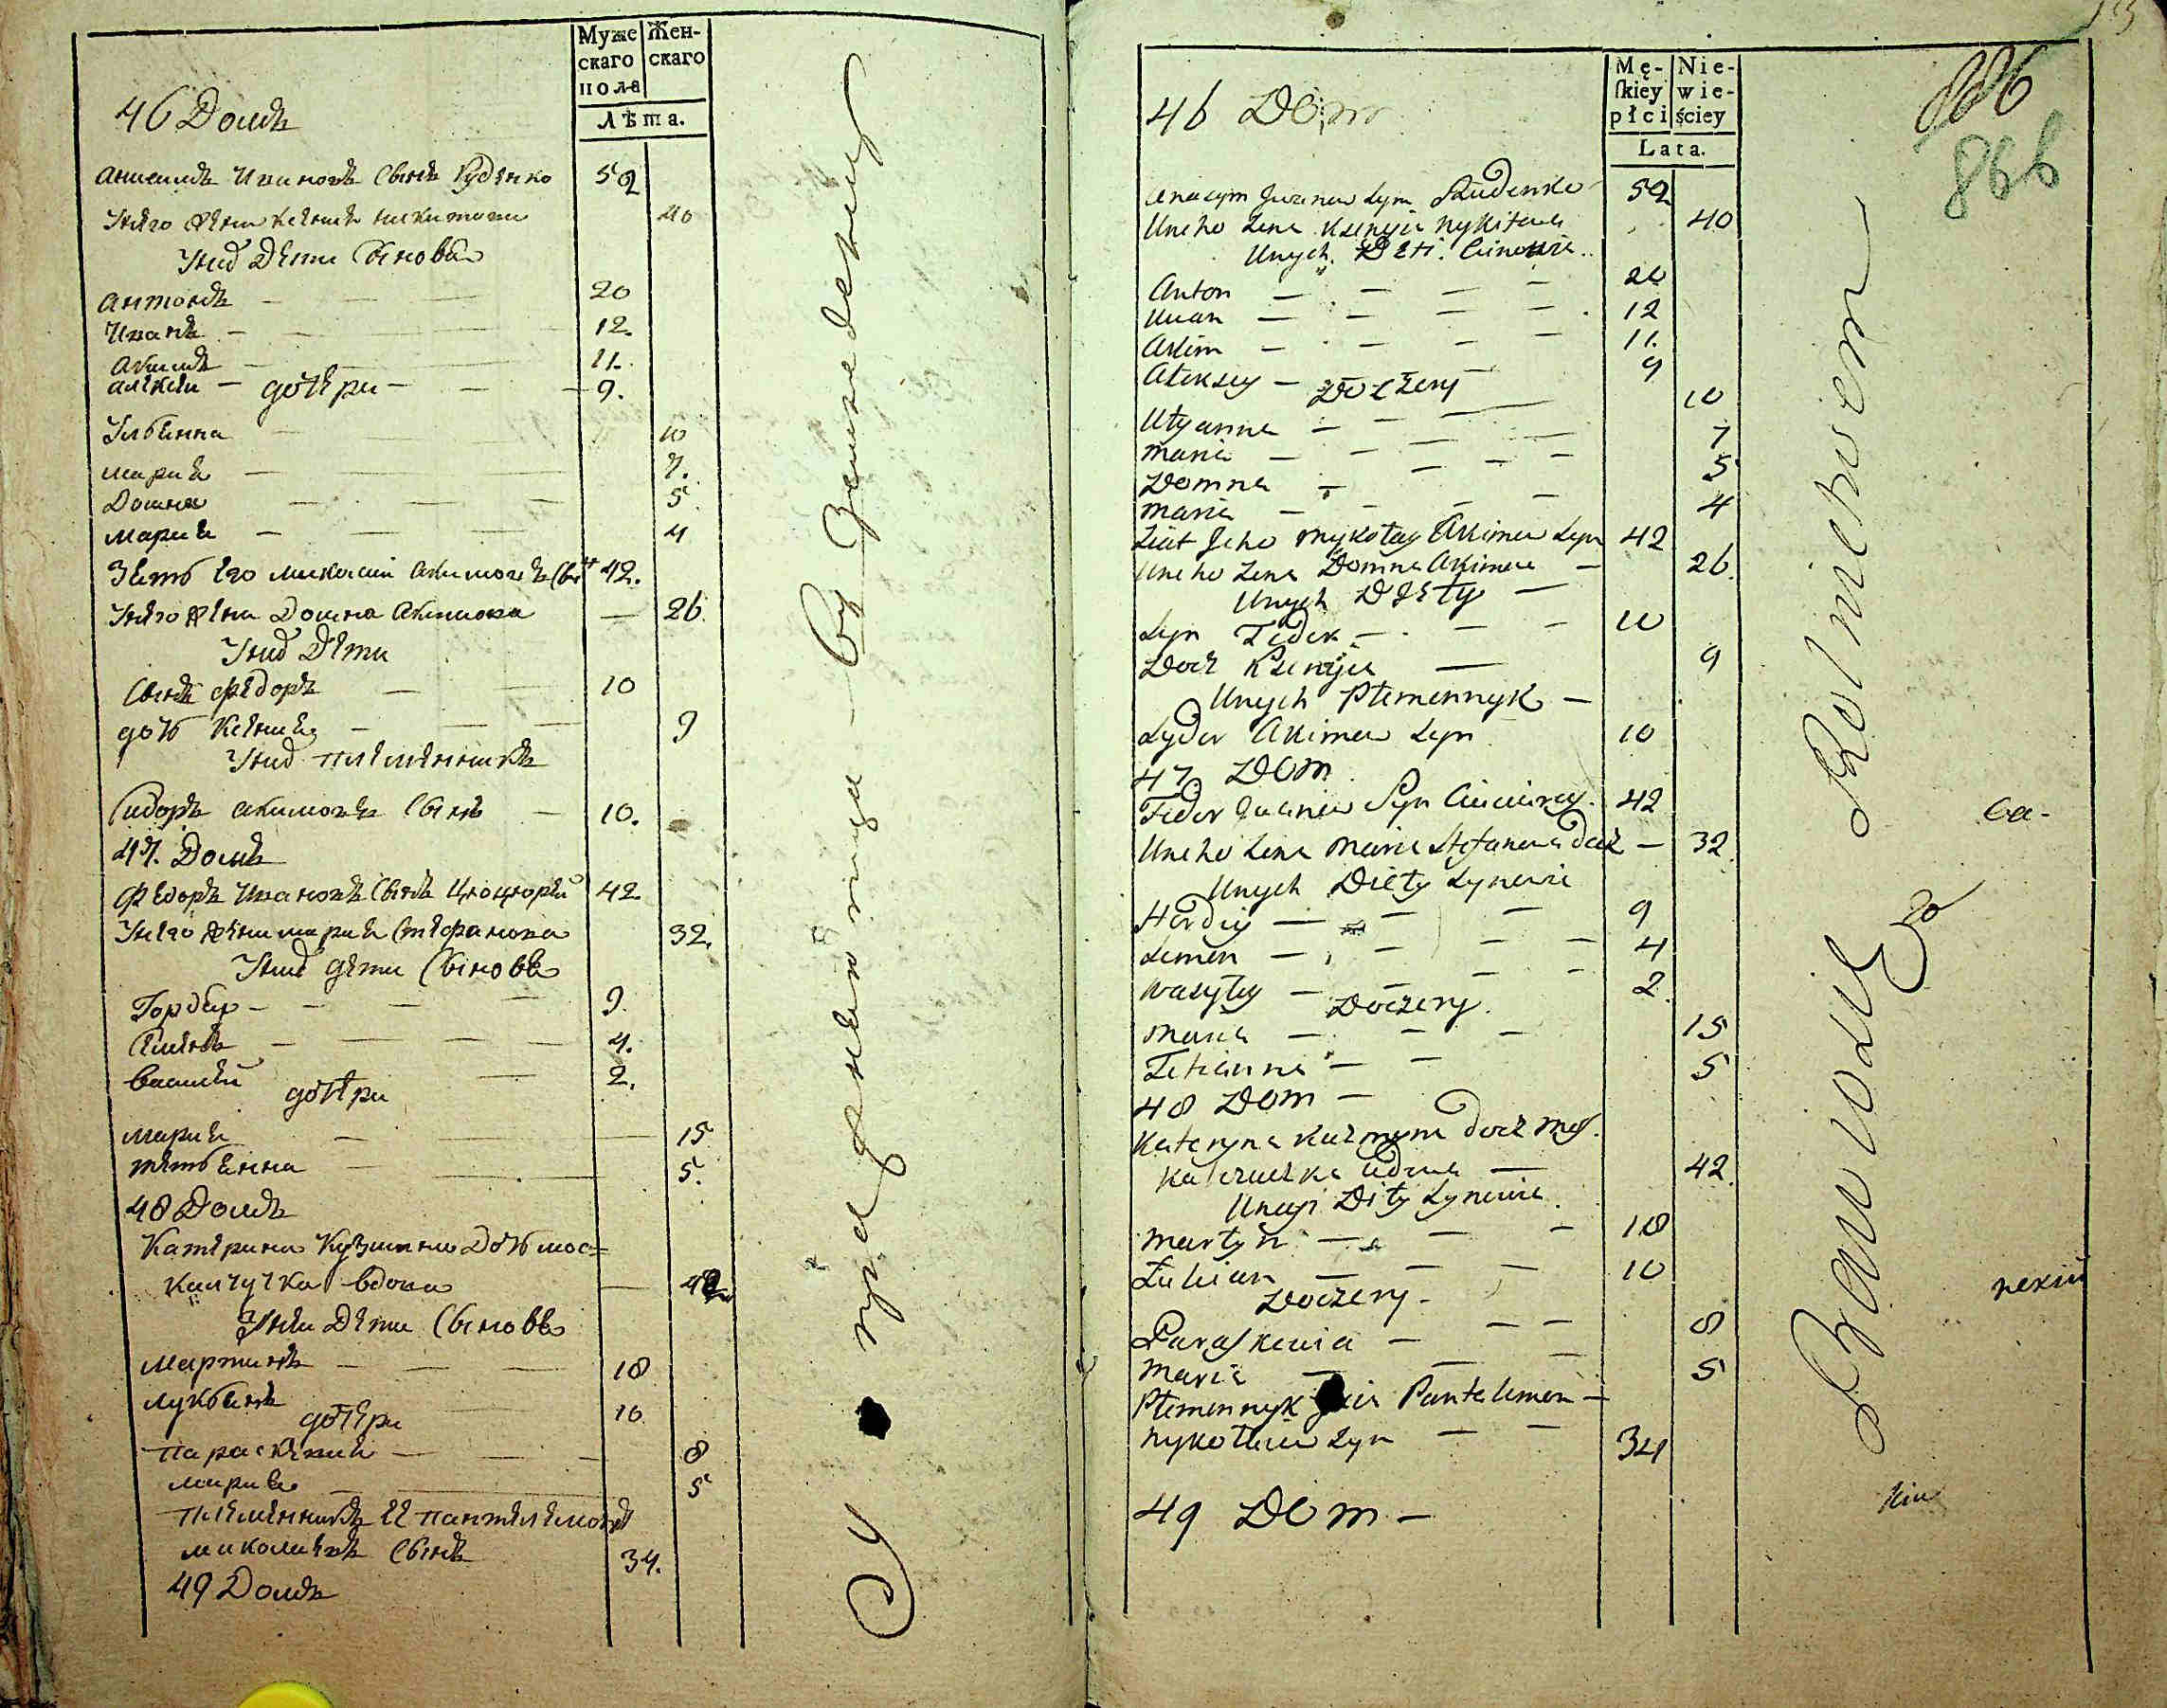 Муже Жен-
скаго скаго
пола
Лѣта.
46 Домъ
Анисимъ Ивановъ Сынъ Руденко 52
Унего жена Ксения Никитова 40
Уних Дети Сыновья
Антонъ — — — 20
Иванъ — — — 12.
Акимъ — — — 11.
алексей — — — 9.
дочери
Ульянна — — — 10
мария — — — 7.
Домна — — — 5
мария — — — 4
Зять его миколай Акимовъ Сынъ 42.
Унего жена Домна Акимова — 26.
Уних Дети
Сынъ Федоръ — — 10
дочь Ксения — — — 9
Уних племенникъ
Сидоръ Акимовъ Сынъ — 10.
47. Домъ
Федоръ Ивановъ Сынъ 42.
Унего жена мария Стефанова 32.
Уних дети Сыновья
Гордей — — — 9.
Семенъ — — — — 4.
василий — 2.
дочери
мария — — — 15
тетьянна — — 5.
48 Домъ
Катерина Кузмина Дочь мос=
калчучка вдова — 42
Унеи Дети Сыновья
мартинъ — — — 18
лукьянъ — — 10
дочери
параскевия — — — 8
мария — — 5
племенникъ ея пантелемонъ
миколаевъ Сынъ 34.
49 Домъ
Mę- Nie-
ſkiey wie-
płci ściey
Lata.
46 Dom
Anasym Iwanow Syn Rudenko 52
Uneho Zena Ksenyia Nykitowa 40
Unych Deti Sinowie
Anton — — — — 20
Iwan — — — — 12
Akim — — — — 11.
Aleksey — — — 9
Doczery
Ulyanna — — — 10
maria — — — — 7
Domna — — — — 5
maria — — — — 4
Ziat Jeho mykołay Akimow Syn 42
Uneho Zena Domna Akimowa — 26.
Unych Diety —
Syn Fedor — — — 10
Docz Ksenyia — 9
Unych Plemennyk —
Sydor Akimow Syn 10
47 Dom
Fedor Iwanow Syn 42
Uneho Zena maria Stefanowa docz — 32
Unych Diety Synowie
Hordiy — — — 9
Semen — — — — 4
Wasyley — — — 2.
Doczery.
maria — — — 15
Tetianna — — 5
48 Dom —
Kateryna Kuzmyna docz mos.
Kalczuczka wdowa — 42.
Uneyi Dity Synowie
martyn — — — 18
Łukian — — — 10
Doczery.
Paraskewia — — — 8
maria — — — 5
Plemennyk Jeia Pantelemon —
Nykołaiw Syn — — 34
49 Dom —
886
866
са-